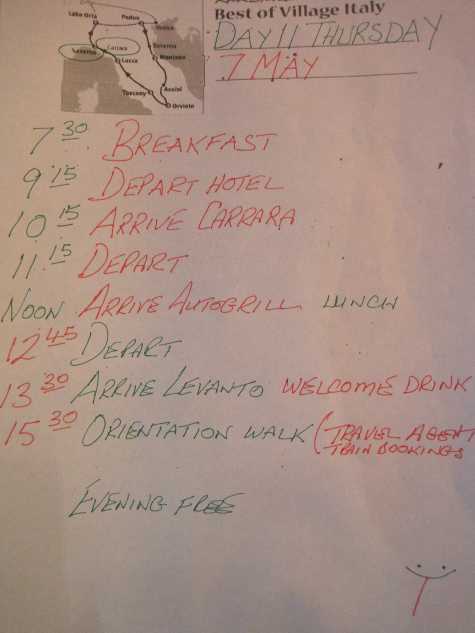 Best of Village Italy
DAY 11 THURSDAY
7 MAY
Lake Orta
Padua
Venice
Levanto
Carrara
Ravenna
Lucca
Tuscany
Assisi
Orvieto
7 30 BREAKFAST
9 15 DEPART HOTEL
10 15 ARRIVE CARRARA
11 15 DEPART
NOON ARRIVE AUTOGRILL LUNCH
12 45 DEPART
13 30 ARRIVE LEVANTO WELCOME DRINK
15 30 ORIENTATION WALK (TRAVEL AGENT
TRAIN BOOKINGS
EVENING FREE